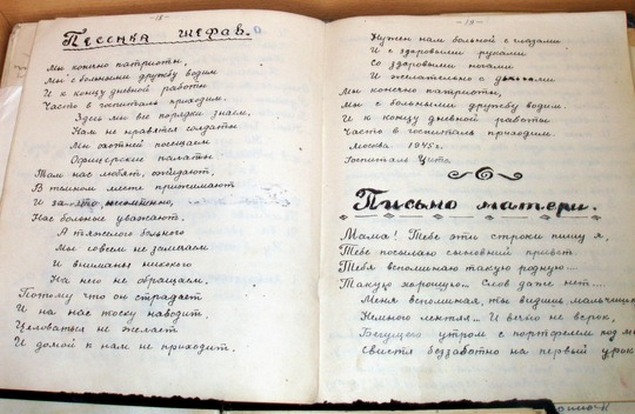 -18-
Песенка шефав.
Мы конечно патриоты,
Мы с больными дружбу водим
И к концу дневной работы
Часто в госпиталь приходим.
Здесь мы все порядки знаем,
Нам не нравятся солдаты
Мы охотней посещаем
Офицерские палаты
Там нас любят, ожидают,
В темном месте прижимают
И за это несомненно,
Нас больные уважают.
А тяжелого больного
Мы совсем не замечаем
И вниманья никакого
На него не обращаем.
Потому что он страдает
И на нас тоску наводит,
Целоваться не желает
И домой к нам не приходит.
-19-
Нужен нам больной с глазами
И с здоровыми руками
Со здоровыми ногами
И желательно с деньгами
Мы конечно патриоты,
Мы с больными дружбу водим.
И к концу дневной работы
Часто в госпиталь приходим.
Москва 1945г.
Госпиталь Цито.
Письмо матери.
Мама! Тебе эти строки пишу я,
Тебе посылаю сыновний привет.
Тебя вспоминаю такую родную...
Такую хорошую... Слов даже нет...
Меня вспоминая, ты видишь мальчишку
Немного лентяя... И вечно не в срок,
Бегущего утром с портфелем под
Свистя беззаботно на первый урок